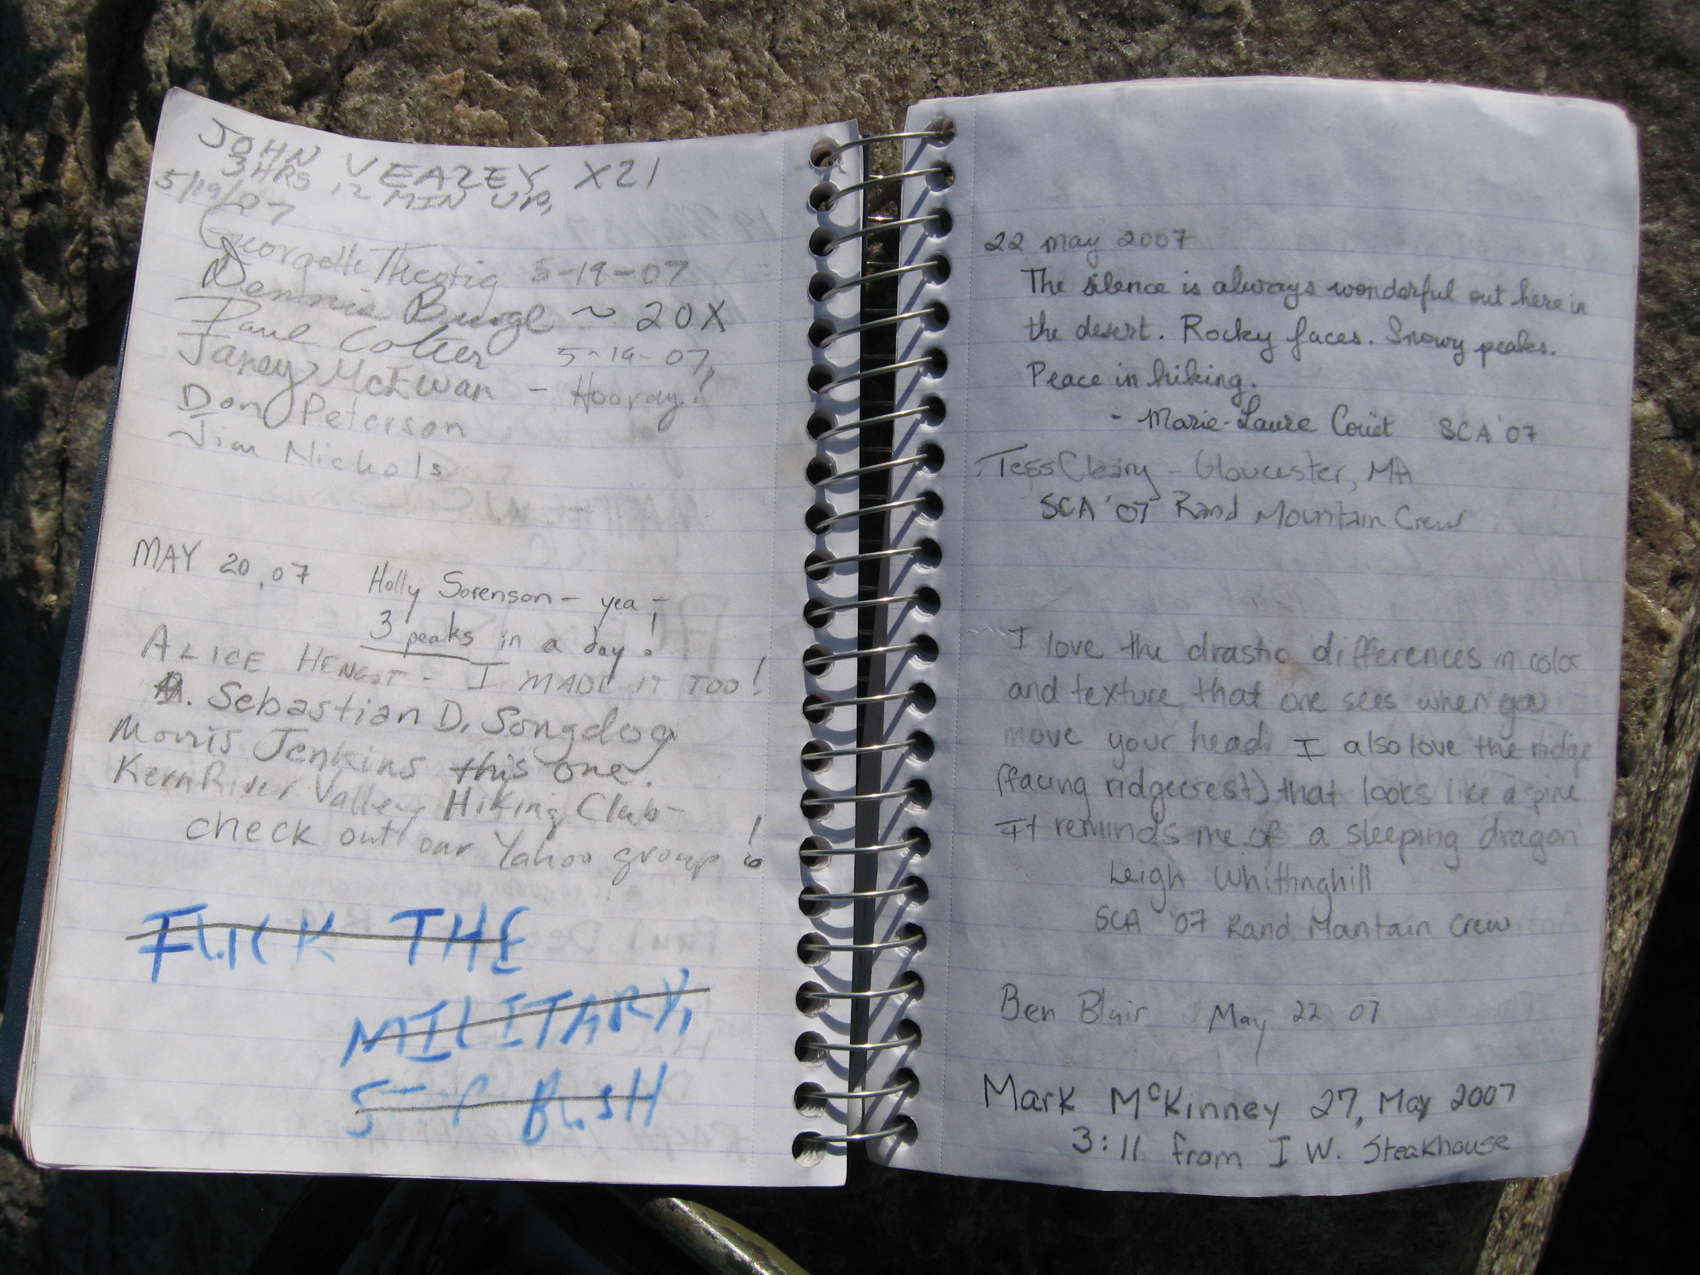 JOHN VEAZEY X21
3 HRS 12 MIN UP,
5/19/07
Georgette Theotig 5-19-07
Dennis Burge ~ 20X
Paul 5-19-07
Janey McEwan - Hooray!
Don Peterson
Jim Nichols
MAY 20, 07 Holly Sorenson - yea!
3 peaks in a day!
ALICE HENGST - I MADE IT TOO!
Sebastian D. Songdog
Morris Jenkins this one.
Kern River Valley Hiking Club-
check out our Yahoo group!
FUCK THE
MILITARY,
STOP BUSH
22 May 2007
The silence is always wonderful out here in
the desert. Rocky faces. Snowy peaks.
Peace in hiking.
- Marie-Laure Couët SCA '07
Tess Cleary - Gloucester, MA
SCA '07 Rand Mountain Crew
I love the drastic differences in color
and texture that one sees when you
move your head. I also love the ridge
(facing ridgecrest) that looks like a spine
It reminds me of a sleeping dragon
Leigh Whittinghill
SCA '07 Rand Mountain Crew
Ben Blair May 22 07
Mark McKinney 27, May 2007
3:11 from I W. Steakhouse